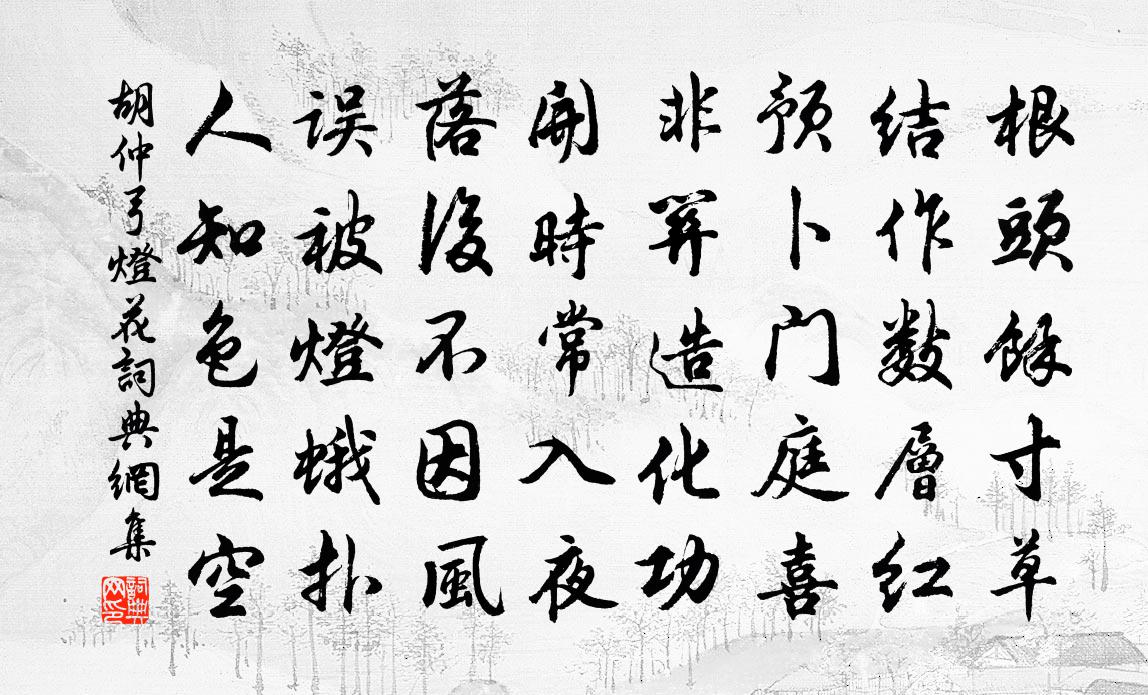 根頭餘寸草
结作數層紅
预卜门庭喜
非关造化功
開時常入夜
落後不因風
误被燈蛾扑
人知色是空
胡仲弓燈花詞典網集
詞典网印